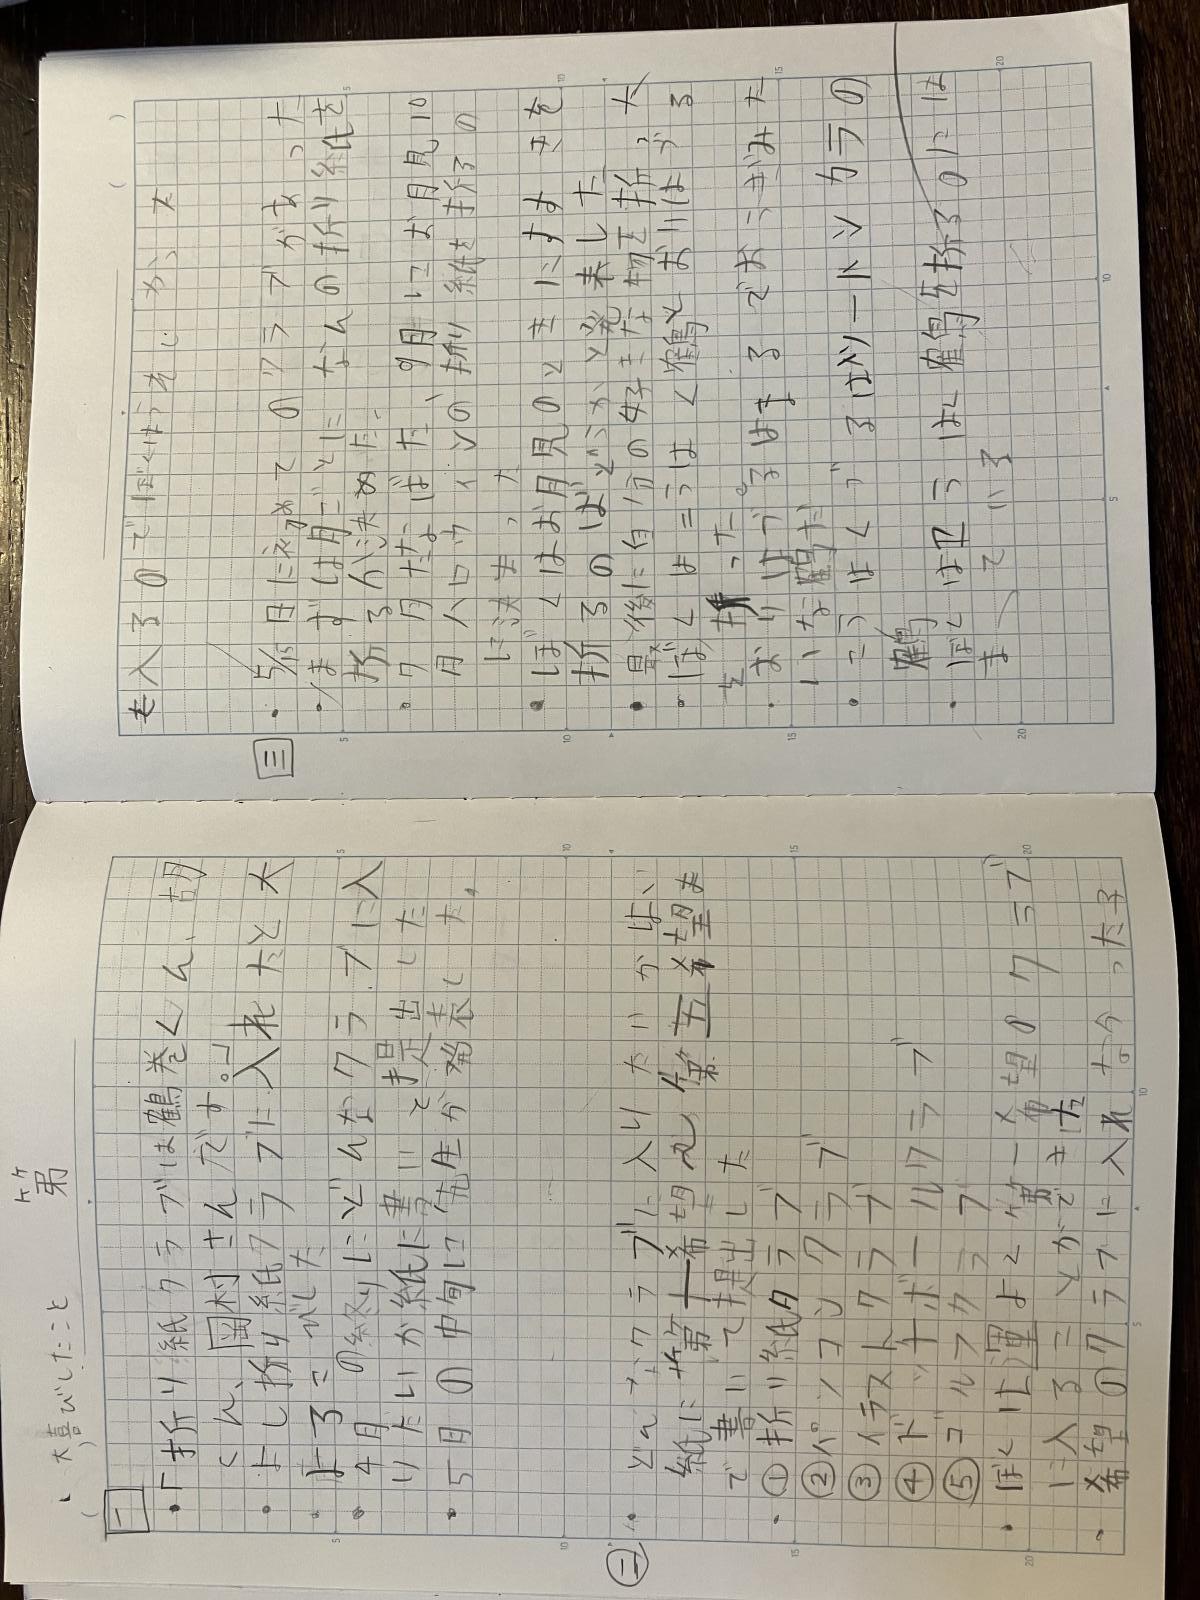 大喜びしたこと
第
一
・「折り紙クラブは鶴巻くん、胡
くん、岡村さんです。」
・よし折り紙クラブに入れたと大
はるこびした
・4月の終りにどんなクラブに入
りたいか紙に書いて提出した
・5月の中旬に先生が発表した。
二
・どんなクラブに入りたいかは、
紙に第一希望から第五希望ま
で書いて提出した
・①折り紙クラブ
②パソコンクラブ
③イラストクラブ
④ドッチボールクラブ
⑤ゴルフクラブ
・ぼくは運よく第一希望のクラブ
に入ることができた
・希望のクラブに入れなかった子
も入るのでぼくはうれしかった
三
・5/15日に初めてのクラブがあった
・まずは月ごとになんの折り紙を
折るか決めた。
・7月たなばた、9月にお月見10
月ハロウィンの折り紙を折るの
に決まった
・ぼくはお月見のときにすすきを
折るのはどうかと発表した
・最後に自分の好きな物を折った
・ぼくはこうはく鶴とおりはづる
を折った。
・おりはづるははるでおうぎみた
いな鶴だ
・こうはくづるはツートンカラーの
鶴
・ぼくはこうはく鶴を折るのには
まっている